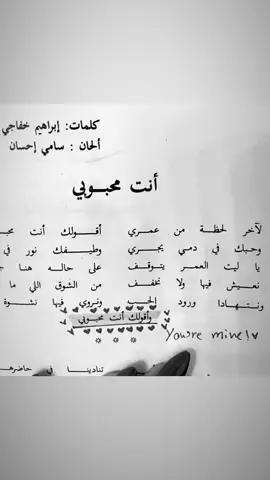 كلمات: إبراهيم خفاجي
ألحان : سامي إحسان
أنت محبوبي
لآخر لحظة من عمري أقولك أنت
وحبك في دمي يجري وطيفك نور في
يا ليت العمر يتوقف على حاله هنا
نعيش فيها ولا نخفف من الشوق اللي ما
ونتهادا ورود الحب ونروي فيها نشوة
وأقولك أنت محبوبي
You're mine!
تنادينا في